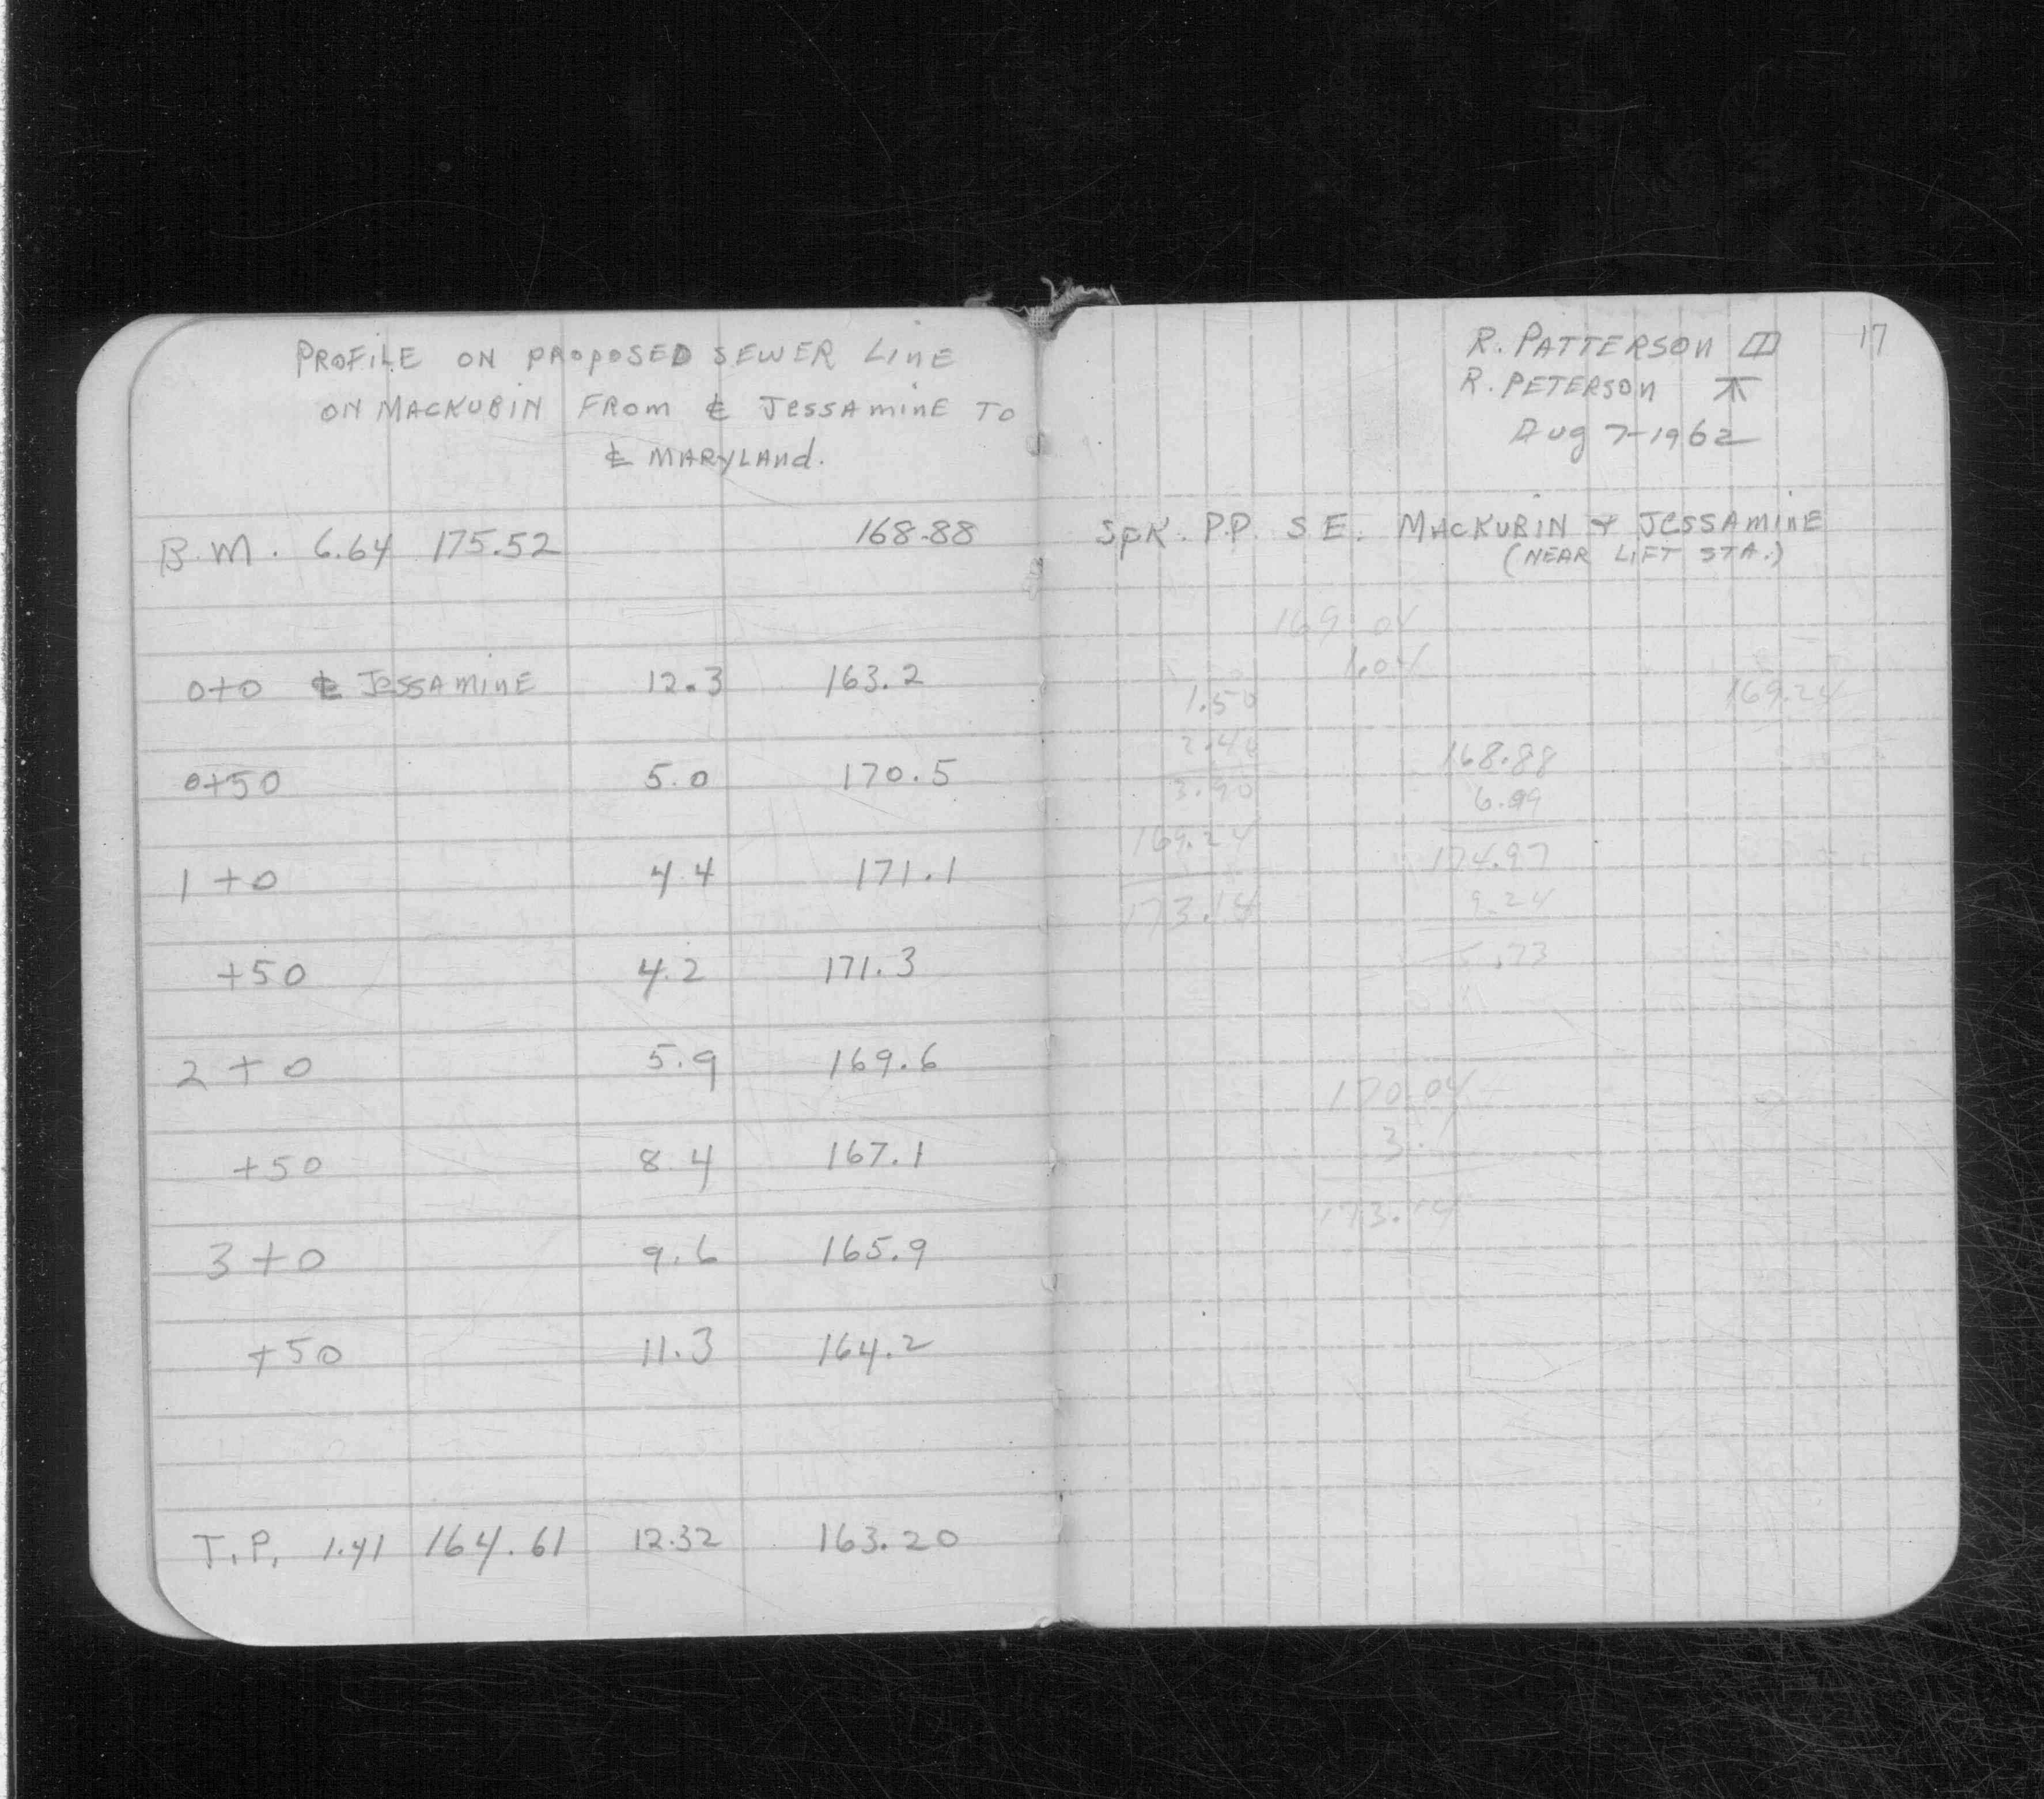 PROFILE ON PROPOSED SEWER LINE
ON MACKUBIN FROM ℄ JESSAMINE TO
℄ MARYLAND.
B.M. 6.64 175.52 168.88
0+0 ℄ JESSAMINE 12.3 163.2
0+50 5.0 170.5
1+0 4.4 171.1
+50 4.2 171.3
2+0 5.9 169.6
+50 8.4 167.1
3+0 9.6 165.9
+50 11.3 164.2
T.P. 1.41 164.61 12.32 163.20
R. PATTERSON 17
R. PETERSON
Aug 7-1962
SPK. P.P. S E. MACKUBIN + JESSAMINE
(NEAR LIFT STA.)
169.04
1.04
1.50 169.24
2.40 168.88
3.90
169.24 174.97
173.14 9.24
5.73
170.04
3.
173.14